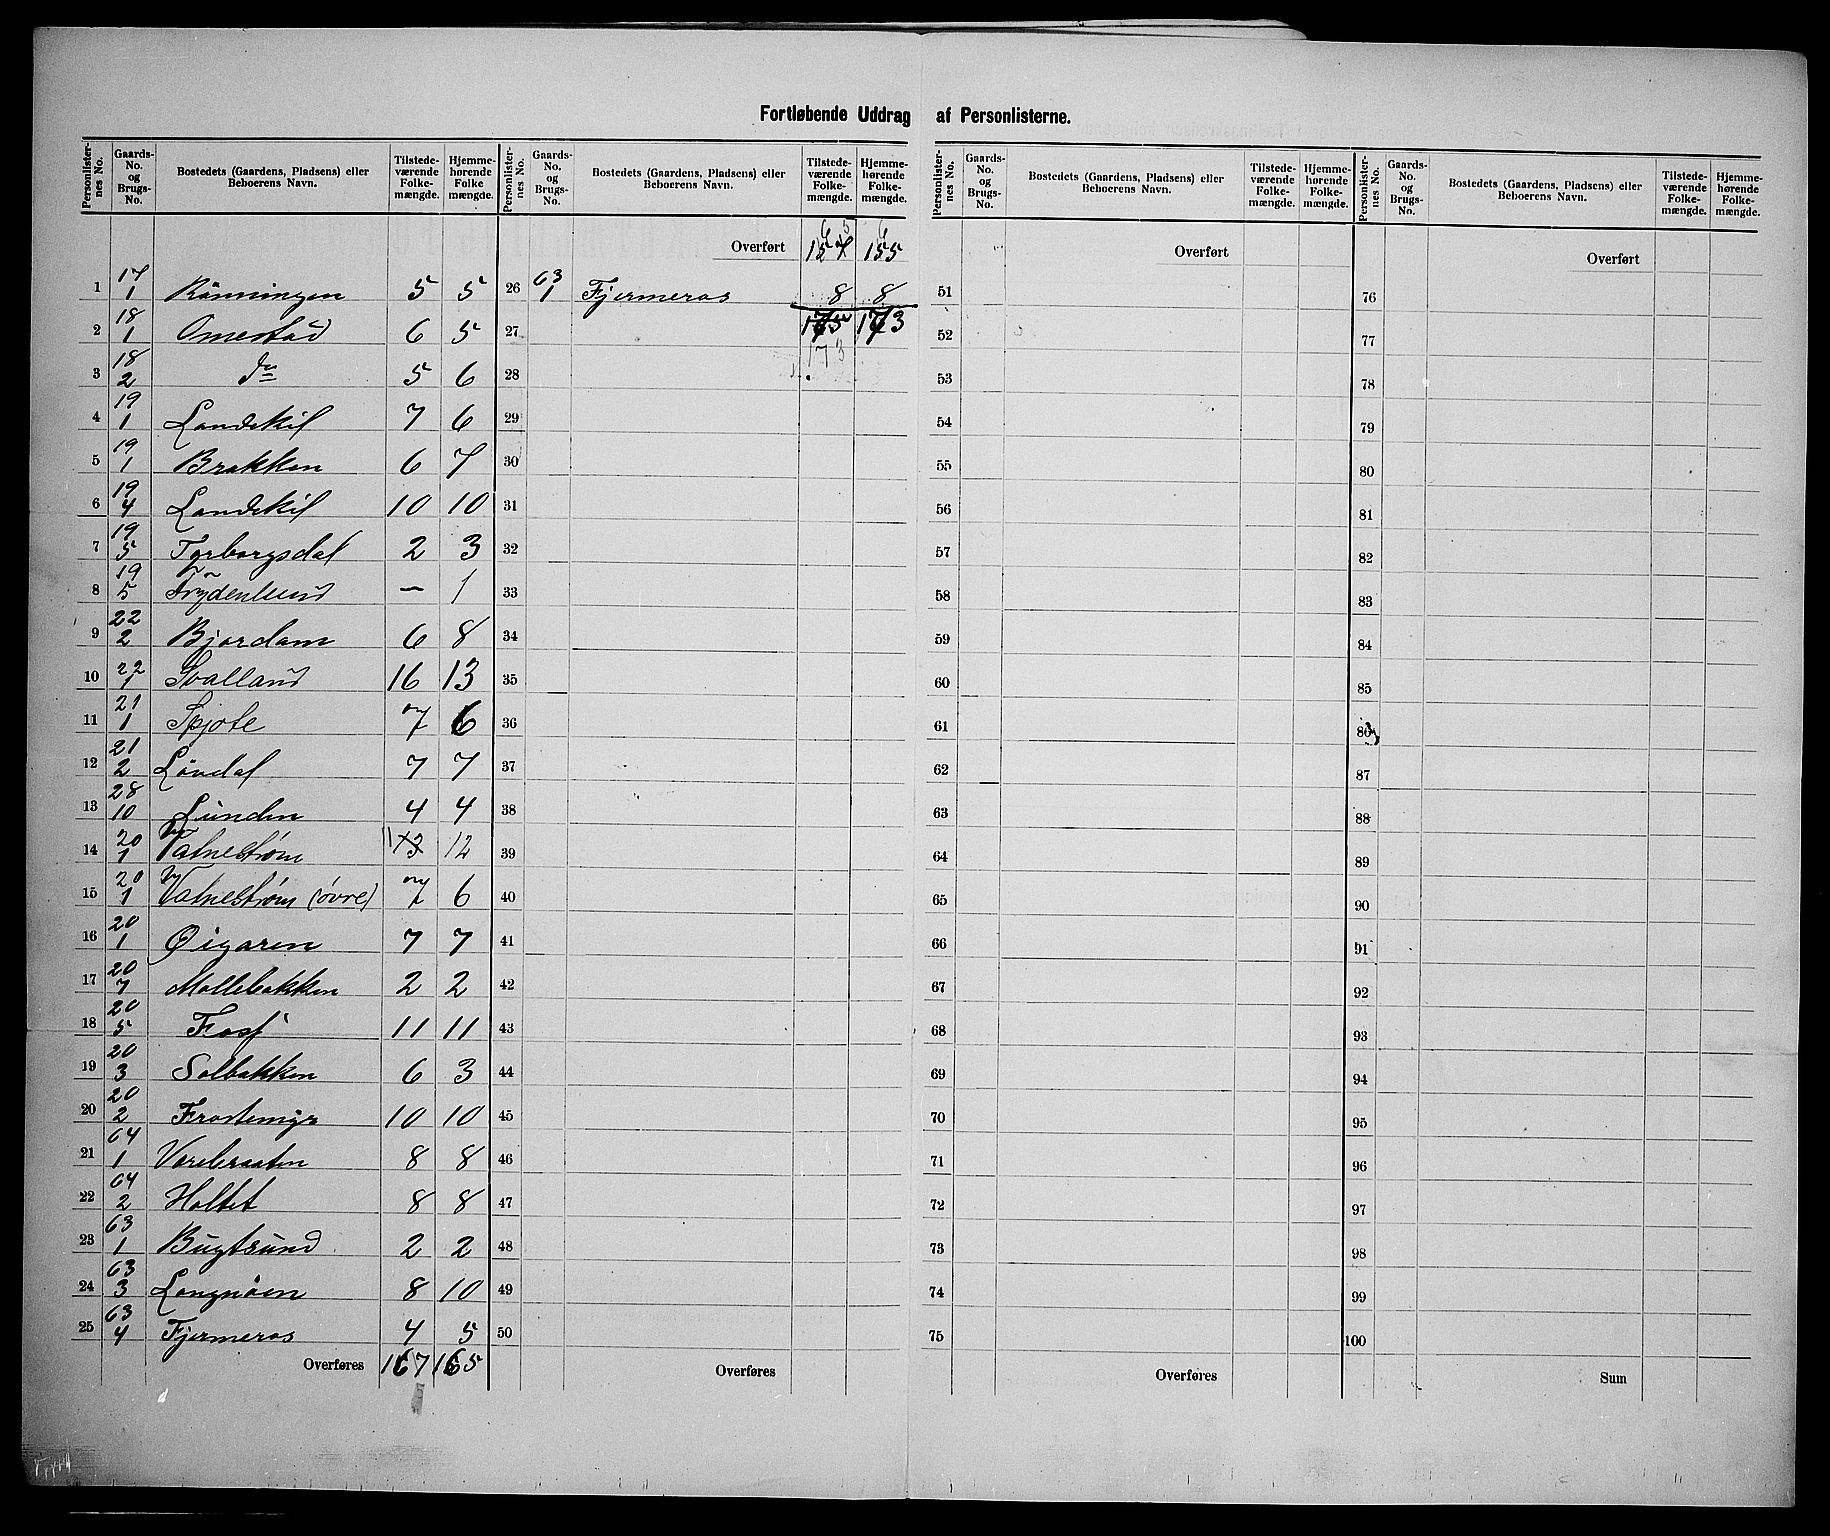 Fortløbende Uddrag af Personlisterne.
Personlisternes No. Gaards-No. og Brugs-No. Bostedets (Gaardens, Pladsens) eller Beboerens Navn. Tilstedeværende Folkemængde. Hjemmehørende Folkemængde.
1 17/1 Rönningen 5 5
2 18/1 Omestad 6 5
3 18/2 do 5 6
4 19/1 Landekil 7 6
5 19/1 Brækken 6 7
6 19/4 Landekil 10 10
7 19/5 Tyrborgsdal 2 3
8 19/5 Frydenlund — 1
9 22/2 Bjordam 6 8
10 22/1 Svalland 16 13
11 21/1 Spjote 7 6
12 21/2 Löndal 7 7
13 28/10 Lunden 4 4
14 20/1 Vatnestrøm 12
15 20/1 Vatnestrøm (øvre) 7 6
16 20/1 Øigaren 7 7
17 20/7 Mollebakken 2 2
18 20/5 Foss 11 11
19 20/3 Solbakken 6 3
20 20/2 Frostemyr 10 10
21 64/1 Varebraaten 8 8
22 64/2 Holtet 8 8
23 63/1 Bugtsund 2 2
24 63/3 Langmoen 8 10
25 63/4 Fjermeros 4 5
Overføres 167 165
Personlisternes No. Gaards-No. og Brugs-No. Bostedets (Gaardens, Pladsens) eller Beboerens Navn. Tilstedeværende Folkemængde. Hjemmehørende Folkemængde.
Overført 155
26 63/1 Fjermeros 8 8
27 175 173
28 173
29
30
31
32
33
34
35
36
37
38
39
40
41
42
43
44
45
46
47
48
49
50
Overføres
Personlisternes No. Gaards-No. og Brugs-No. Bostedets (Gaardens, Pladsens) eller Beboerens Navn. Tilstedeværende Folkemængde. Hjemmehørende Folkemængde.
Overført
51
52
53
54
55
56
57
58
59
60
61
62
63
64
65
66
67
68
69
70
71
72
73
74
75
Overføres
Personlisternes No. Gaards-No. og Brugs-No. Bostedets (Gaardens, Pladsens) eller Beboerens Navn. Tilstedeværende Folkemængde. Hjemmehørende Folkemængde.
Overført
76
77
78
79
80
81
82
83
84
85
86
87
88
89
90
91
92
93
94
95
96
97
98
99
100
Sum